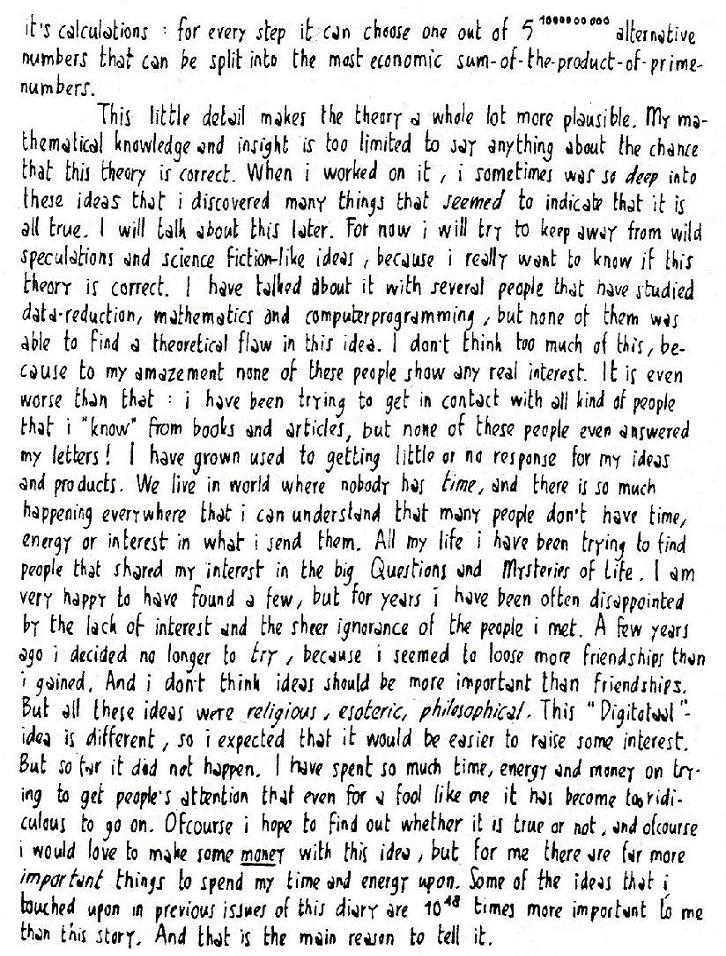 it's calculations : for every step it can choose one out of 5^1000000000 alternative
numbers that can be split into the most economic sum-of-the-product-of-prime-
numbers.
This little detail makes the theory a whole lot more plausible. My ma-
thematical knowledge and insight is too limited to say anything about the chance
that this theory is correct. When i worked on it, i sometimes was so deep into
these ideas that i discovered many things that seemed to indicate that it is
all true. I will talk about this later. For now i will try to keep away from wild
speculations and science fiction-like ideas, because i really want to know if this
theory is correct. I have talked about it with several people that have studied
data-reduction, mathematics and computerprogramming, but none of them was
able to find a theoretical flaw in this idea. I don't think too much of this, be-
cause to my amazement none of these people show any real interest. It is even
worse than that : i have been trying to get in contact with all kind of people
that i "know" from books and articles, but none of these people even answered
my letters! I have grown used to getting little or no response for my ideas
and products. We live in world where nobody has time, and there is so much
happening everywhere that i can understand that many people don't have time,
energy or interest in what i send them. All my life i have been trying to find
people that shared my interest in the big Questions and Mysteries of Life. I am
very happy to have found a few, but for years i have been often disappointed
by the lack of interest and the sheer ignorance of the people i met. A few years
ago i decided no longer to try, because i seemed to loose more friendships than
i gained. And i don't think ideas should be more important than friendships.
But all these ideas were religious, esoteric, philosophical. This "Digitotaal"-
idea is different, so i expected that it would be easier to raise some interest.
But so far it did not happen. I have spent so much time, energy and money on try-
ing to get people's attention that even for a fool like me it has become too ridi-
culous to go on. Ofcourse i hope to find out whether it is true or not, and ofcourse
i would love to make some money with this idea, but for me there are far more
important things to spend my time and energy upon. Some of the ideas that i
touched upon in previous issues of this diary are 10^48 times more important to me
than this story. And that is the main reason to tell it.